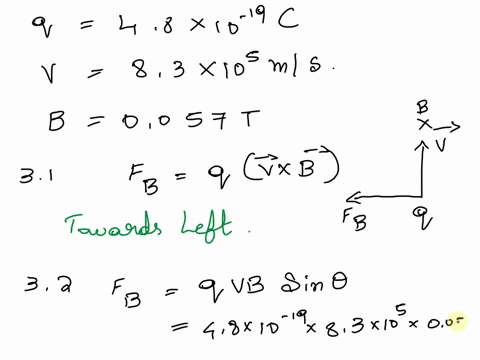 q = 4.8 × 10⁻¹⁹ C
V = 8.3 × 10⁵ m/s.
B = 0.057 T
B
×
V
3.1 F_B = q (V⃗ × B⃗)
F_B q
Towards Left.
3.2 F_B = q V B Sin θ
= 4.8 × 10⁻¹⁹ × 8.3 × 10⁵ × 0.05